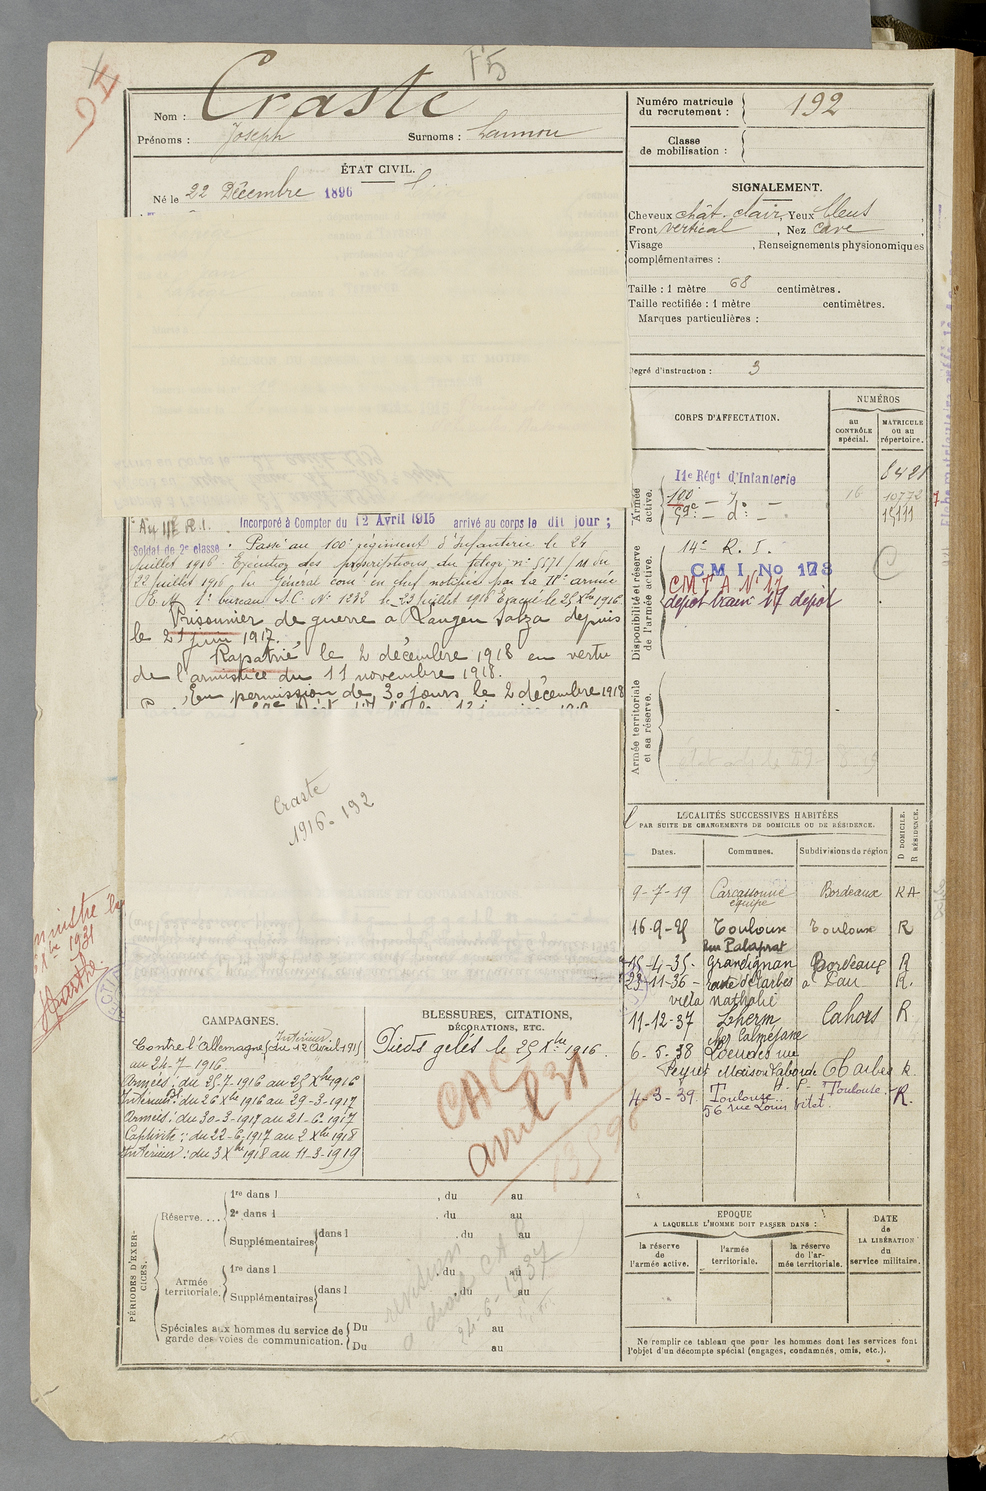 F5
Nom : Craste
Prénoms : Joseph Surnoms :
ÉTAT CIVIL.
Né le 22 Décembre 1896
Numéro matricule du recrutement : 192
Classe de mobilisation :
SIGNALEMENT.
Cheveux chât. clair, Yeux bleus,
Front vertical, Nez cave,
Visage , Renseignements physionomiques
complémentaires :
Taille : 1 mètre 68 centimètres.
Taille rectifiée : 1 mètre centimètres.
Marques particulières :
Degré d'instruction : 3
CORPS D'AFFECTATION.
NUMÉROS
au CONTRÔLE spécial.
MATRICULE ou au répertoire.
Armée active.
11e Régt d'Infanterie 8421
100e — d° — 16 10772
59e — d° — 15111
Disponibilité et réserve de l'armée active.
14e R. I.
C M I No 178
C M T A N° 17
dépôt train 17 dépôt
Armée territoriale et sa réserve.
Au 11e R.I. Incorporé à Compter du 12 Avril 1915 arrivé au corps le dit jour ;
Soldat de 2e classe. Passé au 100e régiment d'Infanterie le 24
juillet 1916. Exécution des prescriptions du télégr. n° 5571/M du
22 juillet 1916 du Général comt en chef notifiée par la IIe armée
E. M. 1er bureau S.C. N° 1282 le 23 juillet 1916 Evacué le 25 Xbre 1916.
Prisonnier de guerre à Langen Salza depuis
le 21 juin 1917.
Rapatrié le 2 décembre 1918 en vertu
de l'armistice du 11 novembre 1918.
En permission de 30 jours le 2 décembre 1918
Craste
1916 - 192
LOCALITÉS SUCCESSIVES HABITÉES
PAR SUITE DE CHANGEMENTS DE DOMICILE OU DE RÉSIDENCE.
Dates. Communes. Subdivisions de région D DOMICILE. R RÉSIDENCE.
9-7-19 Carcassonne Bordeaux RA
16-9-25 Toulouse Toulouse R
Rue Palaprat
15-4-35 Gradignan Bordeaux R
23-11-36 route de Tarbes à Pau R.
villa Nathalie
11-12-37 Lherm Cahors R
par Calméjane
6-5-38 Lourdes rue
Peyret Maison Laborde Tarbes R.
H.-P. Toulouse.
4-3-39 Toulouse R.
56 rue Louis Vitet
CAMPAGNES.
Contre l'Allemagne Intérieur du 12 Avril 1915
au 24-7-1916
Armées : du 25-7-1916 au 25 Xbre 1916
Intérieur : du 26 Xbre 1916 au 29-3-1917
Armées : du 30-3-1917 au 21-6-1917
Captivité : du 22-6-1917 au 2 Xbre 1918
Intérieur : du 3 Xbre 1918 au 11-3-1919
BLESSURES, CITATIONS,
DÉCORATIONS, ETC.
Pieds gelés le 25 Xbre 1916.
CAC
avril 31
PÉRIODES D'EXERCICES.
Réserve....
1re dans l , du au
2e dans l , du au
Supplémentaires dans l , du au
Armée territoriale.
1re dans l , du au
Supplémentaires dans l , du au
Spéciales aux hommes du service de garde des voies de communication.
Du au
Du au
révision
24-6-1937
EPOQUE
A LAQUELLE L'HOMME DOIT PASSER DANS :
la réserve de l'armée active.
l'armée territoriale.
la réserve de l'armée territoriale.
DATE de LA LIBÉRATION du service militaire.
Ne remplir ce tableau que pour les hommes dont les services font
l'objet d'un décompte spécial (engagés, condamnés, omis, etc.).